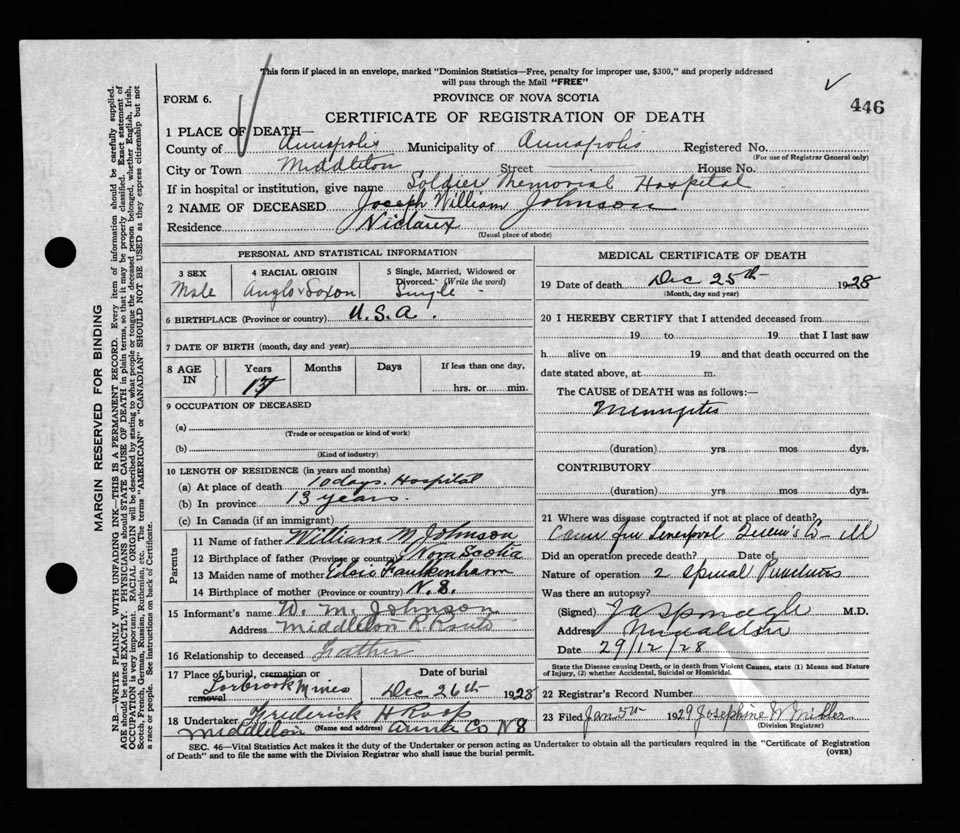 This form if placed in an envelope, marked "Dominion Statistics—Free, penalty for improper use, $300," and properly addressed
will pass through the Mail "FREE"
FORM 6.
PROVINCE OF NOVA SCOTIA
446
CERTIFICATE OF REGISTRATION OF DEATH
1 PLACE OF DEATH—
County of Annapolis Municipality of Annapolis Registered No.
(For use of Registrar General only)
City or Town Middleton Street House No.
If in hospital or institution, give name Soldier Memorial Hospital
2 NAME OF DECEASED Joseph William Johnson
Residence Nictaux
(Usual place of abode)
PERSONAL AND STATISTICAL INFORMATION
3 SEX
Male
4 RACIAL ORIGIN
Anglo Saxon
5 Single, Married, Widowed or
Divorced. (Write the word)
Single
6 BIRTHPLACE (Province or country) U.S.A.
7 DATE OF BIRTH (month, day and year)
8 AGE IN
Years
17
Months
Days
If less than one day,
hrs. or min.
9 OCCUPATION OF DECEASED
(a)
(Trade or occupation or kind of work)
(b)
(Kind of industry)
10 LENGTH OF RESIDENCE (in years and months)
(a) At place of death 10 days. Hospital
(b) In province 13 years.
(c) In Canada (if an immigrant)
Parents
11 Name of father William M Johnson
12 Birthplace of father (Province or country) Nova Scotia
13 Maiden name of mother Faulkenham
14 Birthplace of mother (Province or country) N.S.
15 Informant's name W. M. Johnson
Address Middleton R. Route
16 Relationship to deceased Father
17 Place of burial, cremation or removal
Torbrook Mines
Date of burial
Dec 26th 1928
18 Undertaker Frederick H
Middleton (Name and address) Anna Co NS
MEDICAL CERTIFICATE OF DEATH
19 Date of death Dec 25th 1928
(Month, day and year)
20 I HEREBY CERTIFY that I attended deceased from
19 to 19 that I last saw
h alive on 19 and that death occurred on the
date stated above, at m.
The CAUSE OF DEATH was as follows:—
Meningitis
(duration) yrs mos dys.
CONTRIBUTORY
(duration) yrs mos dys.
21 Where was disease contracted if not at place of death?
Came from Liverpool Queen's Co ill
Did an operation precede death? Date of
Nature of operation 2 Spinal Punctures
Was there an autopsy?
(Signed) J A Sponagle M.D.
Address Middleton
Date 29/12/28
State the Disease causing Death, or in death from Violent Causes, state (1) Means and Nature
of Injury, (2) whether Accidental, Suicidal or Homicidal.
22 Registrar's Record Number
23 Filed Jan 5th 1929 Josephine W Miller
(Division Registrar)
SEC. 46—Vital Statistics Act makes it the duty of the Undertaker or person acting as Undertaker to obtain all the particulars required in the "Certificate of Registration
of Death" and to file the same with the Division Registrar who shall issue the burial permit.
(OVER)
MARGIN RESERVED FOR BINDING
N.B.—WRITE PLAINLY WITH UNFADING INK—THIS IS A PERMANENT RECORD. Every item of information should be carefully supplied.
AGE should be stated EXACTLY. PHYSICIANS should STATE CAUSE OF DEATH in plain terms, so that it may be properly classified. Exact statement of
OCCUPATION is very important. RACIAL ORIGIN will be described by stating to what people or tongue the deceased person belonged, whether English, Irish,
Scotch, French, German, Russian, Ruthenian, etc. The terms "AMERICAN" or "CANADIAN" SHOULD NOT BE USED as they express citizenship but not
a race or people. See instructions on back of Certificate.